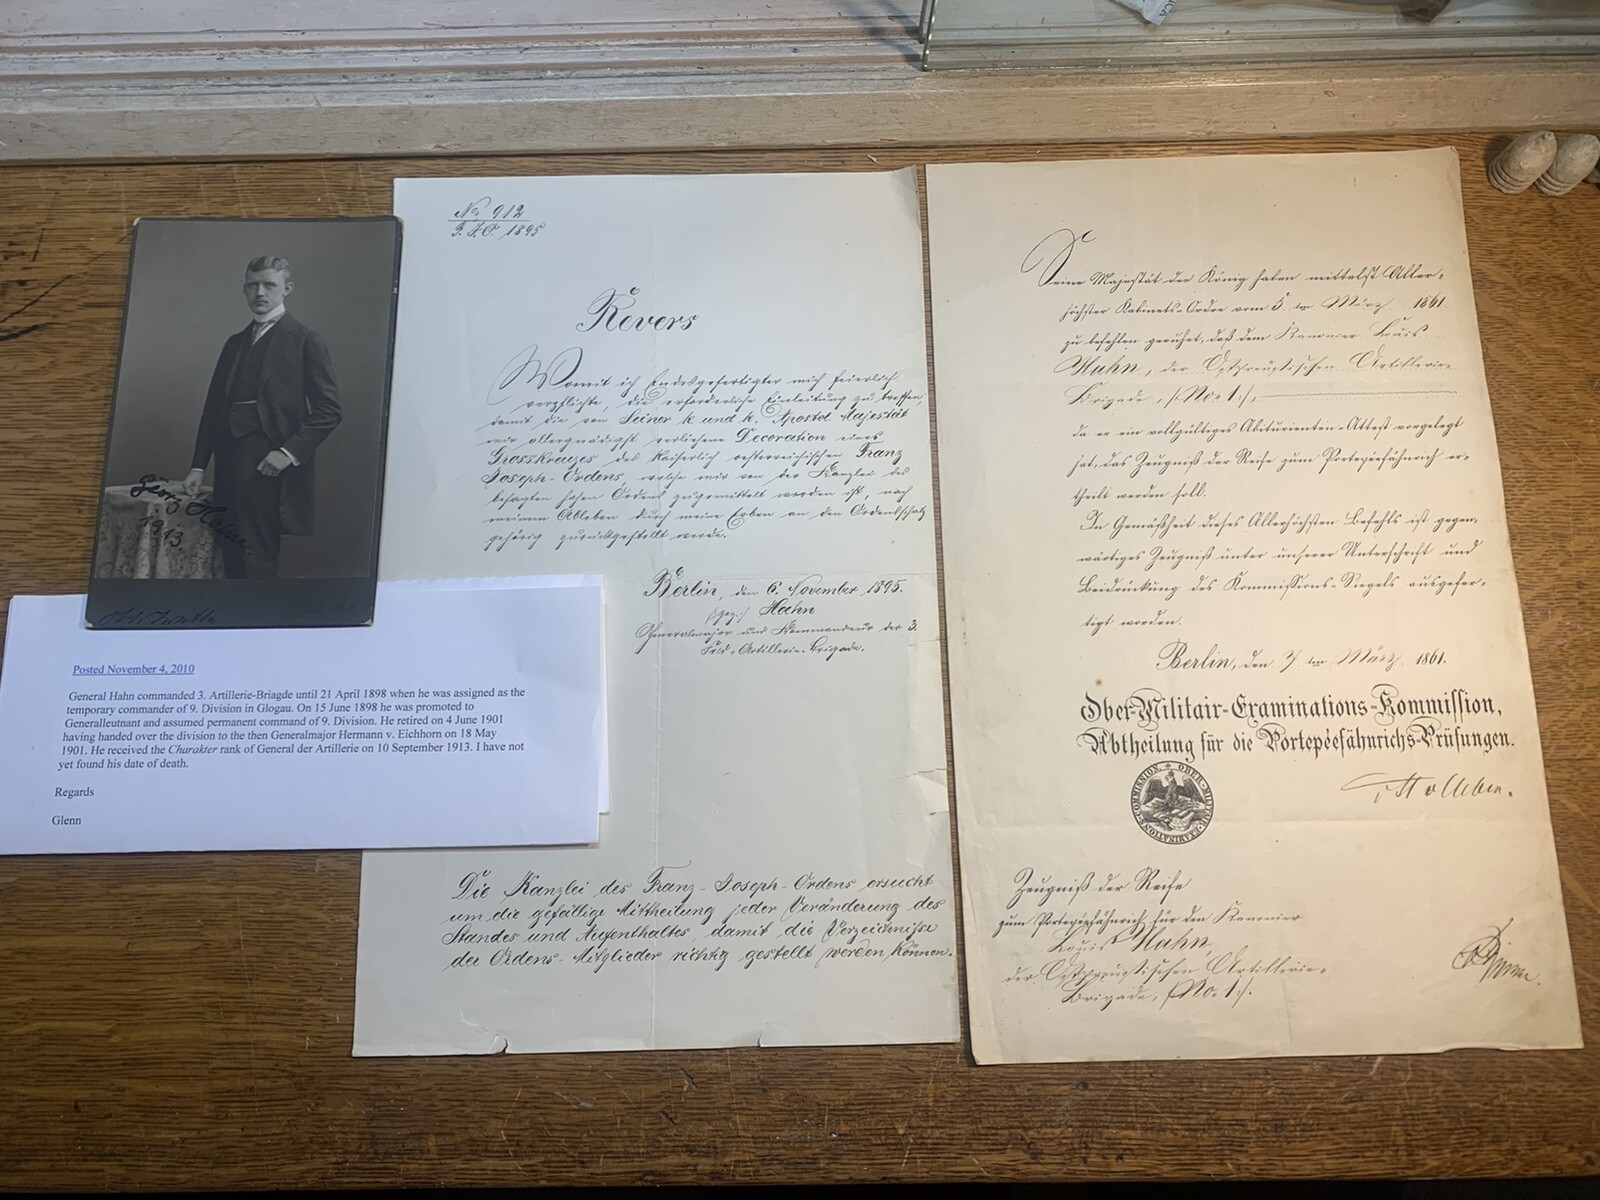 Georg Hahn.
1913.
Posted November 4, 2010
General Hahn commanded 3. Artillerie-Briagde until 21 April 1898 when he was assigned as the
temporary commander of 9. Division in Glogau. On 15 June 1898 he was promoted to
Generalleutnant and assumed permanent command of 9. Division. He retired on 4 June 1901
having handed over the division to the then Generalmajor Hermann v. Eichhorn on 18 May
1901. He received the Charakter rank of General der Artillerie on 10 September 1913. I have not
yet found his date of death.
Regards
Glenn
No 912
F. J. O. 1895
Revers
Womit ich Endesgefertigter mich feierlich
verpflichte, die erforderliche Einleitung zu treffen,
damit die von Seiner k. und k. Apostol. Majestät
mir allergnädigst verliehene Decoration eines
Grosskreuzes des kaiserlich oesterreichischen Franz
Joseph-Ordens, welche mir von der Kanzlei des
besagten hohen Ordens zugemittelt worden ist, nach
meinem Ableben durch meine Erben an den Ordensschatz
gehörig zurückgestellt werde.
Berlin, den 6. November 1895.
(gez.) Hahn
Generalmajor und Kommandeur der 3.
Feld-Artillerie-Brigade.
Die Kanzlei des Franz-Joseph-Ordens ersucht
um die gefällige Mittheilung jeder Veränderung des
Standes und Aufenthaltes, damit die Verzeichnisse
der Ordens-Mitglieder richtig gestellt werden können.
Seine Majestät der König haben mittelst Aller-
höchster Kabinets-Ordre vom 5ten März 1861
zu befehlen geruhet, daß dem Kanonier Louis
Hahn, der Ostpreußischen Artillerie-
Brigade, /:No. 1:/,
da er ein vollgültiges Abiturienten-Attest vorgelegt
hat, das Zeugniß der Reife zum Portepéefähnrich er-
theilt werden soll.
In Gemäßheit dieses Allerhöchsten Befehls ist gegen-
wärtiges Zeugniß unter unserer Unterschrift und
Beidrückung des Kommissions-Siegels ausgefer-
tigt worden.
Berlin, den 7ten März 1861.
Ober-Militair-Examinations-Kommission,
Abtheilung für die Portepéefähnrichs-Prüfungen.
OBER-MILITAIR-EXAMINATIONS-COMMISSION.
Zeugniß der Reife
zum Portepéefähnrich für den Kanonier
Louis Hahn,
der Ostpreußischen Artillerie-
Brigade, /:No. 1:/.